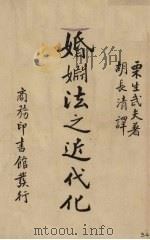 栗生武夫著
胡長清譯
婚婣法之近代化
商務印書館發行